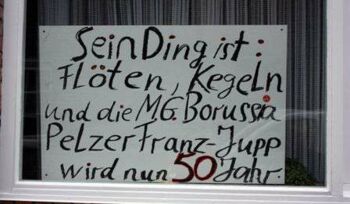 Sein Ding ist:
Flöten, Kegeln
und die M.G. Borussia
Pelzer Franz-Jupp
wird nun 50 Jahr.